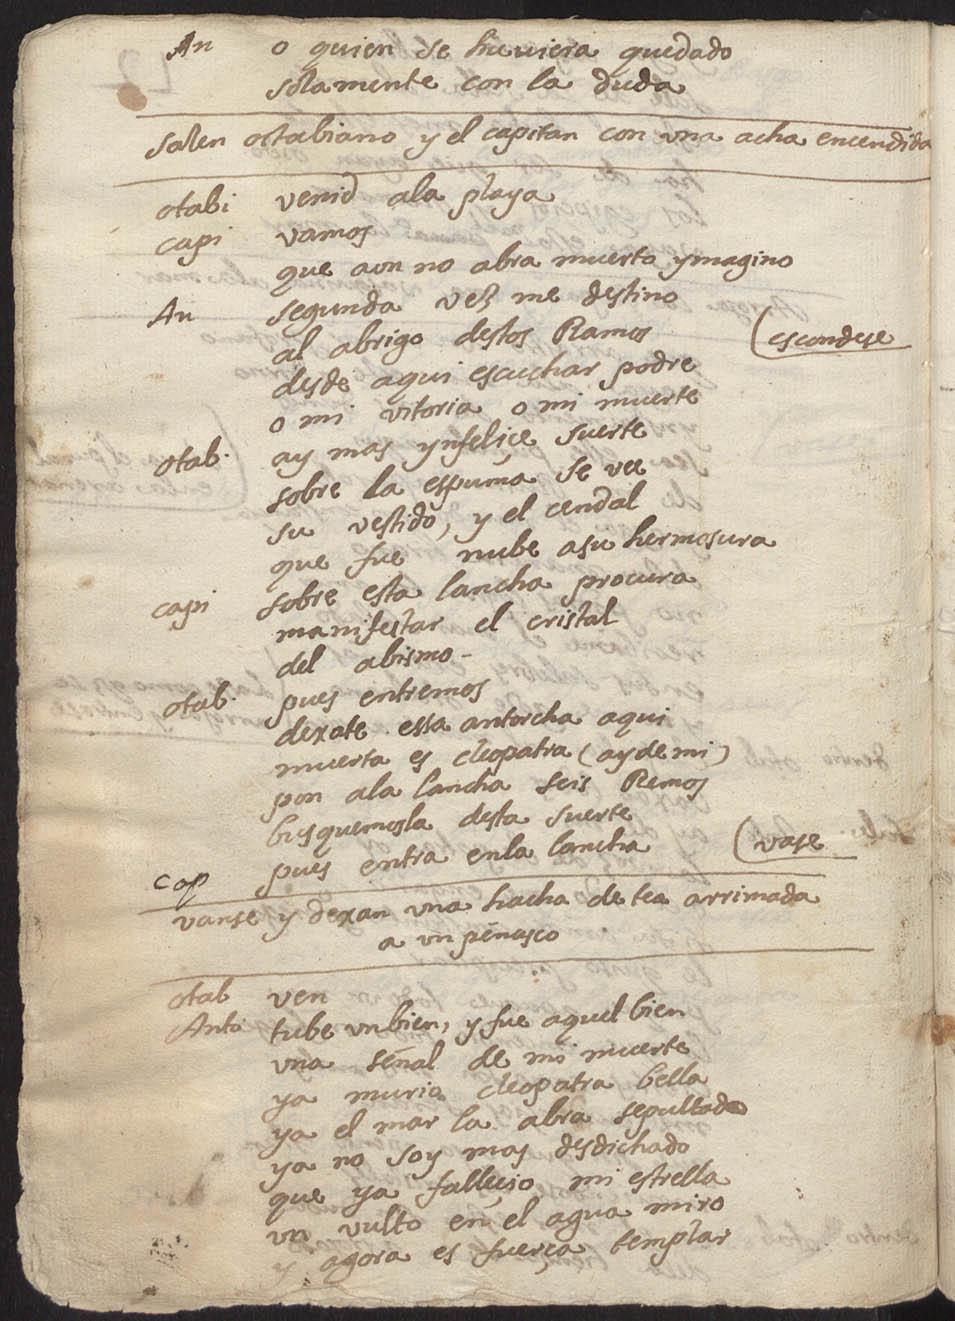 An o quien se huuiera quedado
solamente con la duda
salen octabiano y el capitan con vna acha encendida
otabi venid ala playa
capi vamos
que aun no abra muerto ymagino
An segunda vez me destino
al abrigo destos Ramos (escondese
desde aqui escuchar podre
o mi vitoria o mi muerte
otab. ay mas ynfeliçe suerte
sobre la espuma se vee
su vestido, y el cendal
que fue nube asu hermosura
capi sobre esta lancha procura
manifestar el cristal
del abismo -
otab. pues entremos
dexate essa antorcha aqui
muerta es cleopatra (ay de mi)
pon ala lancha seis Remos
busquemosla desta suerte
cap pues entra enla lancha (vase
vanse y dexan vna hacha de tea arrimada
a vn peñasco
otab ven
Anto tube vn bien, y fue aquel bien
vna señal de mi muerte
ya murio cleopatra bella
ya el mar la abra sepultado
ya no soy mas desdichado
que ya falleçio mi estrella
vn vulto en el agua miro
y agora es fuerça templar